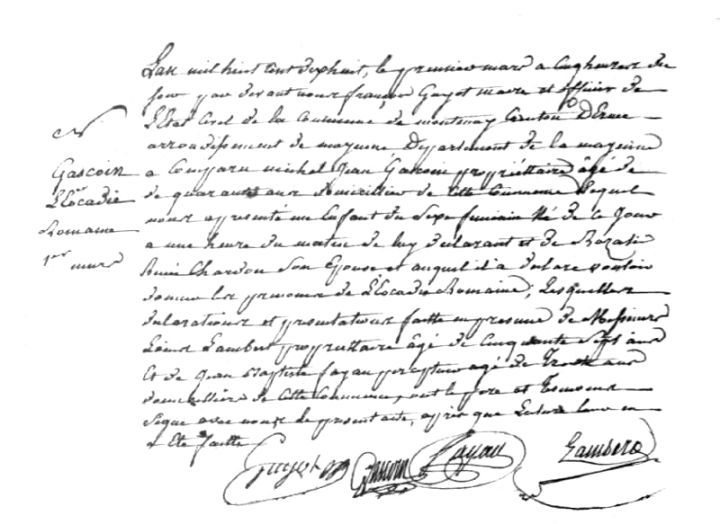 N
Gascoin
Léocadie
Romaine
1er mars
L'an mil huit cent dixhuit, le premier mars a cinq heures du
jour par devant nous françois Guyot maire et officier de
L'Etat Civil de la Commune de montenay Canton D'Ernée
arrondissement de mayenne Département de la mayenne
a Comparu michel Jean Gascoin propriéttaire âgé de
de quarante ans domicillier de cette Commune Lequel
nous a présenté un Enfant du Sexe feminin Né de ce jour
a une heure du matin de luy déclarant et de
Chardon Son Epouse et auquel il a déclaré vouloir
donner les prenoms de Léocadie Romaine, Lesquelles
déclarations et presentations faitte en presence de Messieurs
Lambert propriettaire âgé de Cinquante Sept ans
Et de Jean Baptiste fayau percepteur agé de Trente ans
domicillier de Cette Commune, ont le pere et Temoins
Signé avec nous le present acte, après que Lecture leur en
a Eté faitte
Guyot Gascoin Fayau Lambert